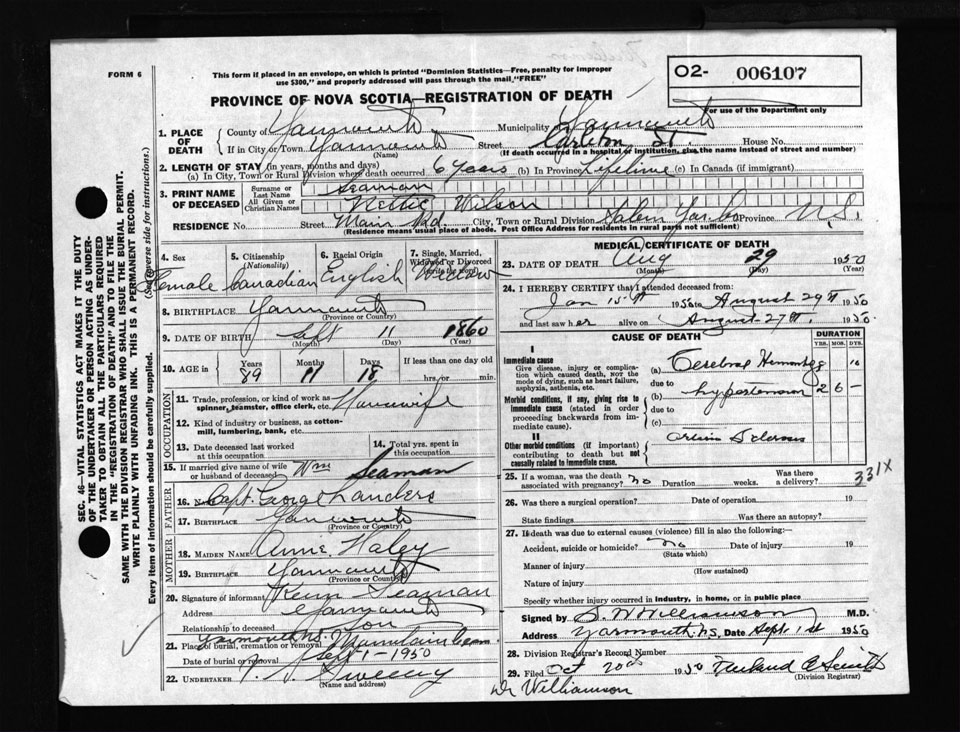 FORM 6
This form if placed in an envelope, on which is printed "Dominion Statistics—Free, penalty for improper
use $300," and properly addressed will pass through the mail, "FREE"
PROVINCE OF NOVA SCOTIA—REGISTRATION OF DEATH
O2- 006107
For use of the Department only
1. PLACE OF DEATH { County of Yarmouth Municipality of Yarmouth
If in City or Town Yarmouth (Name) Street Carleton St. House No.
(If death occurred in a hospital or institution, give the name instead of street and number)
2. LENGTH OF STAY (in years, months and days)
(a) In City, Town or Rural Division where death occurred 6 years (b) In Province Lifetime (c) In Canada (if immigrant)
3. PRINT NAME OF DECEASED { Surname or Last Name Seaman
All Given or Christian Names Nettie Wilson
RESIDENCE No. Street Main Rd. City, Town or Rural Division Salem Yar. Co Province N.S.
(Residence means usual place of abode. Post Office Address for residents in rural parts not sufficient)
4. Sex Female
5. Citizenship (Nationality) Canadian
6. Racial Origin English
7. Single, Married, Widowed or Divorced (Write the word) Widow
8. BIRTHPLACE Yarmouth
(Province or Country)
9. DATE OF BIRTH Sept 11 1860
(Month) (Day) (Year)
10. AGE in { Years 89 Months 11 Days 18 If less than one day old
hrs. or min.
OCCUPATION
11. Trade, profession, or kind of work as spinner, teamster, office clerk, etc. Housewife
12. Kind of industry or business, as cotton-mill, lumbering, bank, etc.
13. Date deceased last worked at this occupation
14. Total yrs. spent in this occupation
15. If married give name of wife or husband of deceased Wm Seaman
FATHER
16. Name Capt. George Landers
17. Birthplace Yarmouth
(Province or Country)
MOTHER
18. MAIDEN NAME Annie Haley
19. BIRTHPLACE Yarmouth
(Province or Country)
20. Signature of informant Seaman
Address Yarmouth
Relationship to deceased Son
21. Place of burial, cremation or removal Yarmouth N.S. Mountain Cem
Date of burial or removal Sept 1 - 1950
22. UNDERTAKER Sweeny
(Name and address)
MEDICAL CERTIFICATE OF DEATH
23. DATE OF DEATH Aug 29 1950
(Month) (Day) (Year)
24. I HEREBY CERTIFY that I attended deceased from:
Jan 15th 1950 to August 29th 1950
and last saw her alive on August 27th 1950.
CAUSE OF DEATH
DURATION
YRS. MOS. DYS.
I
Immediate cause
Give disease, injury or complication which caused death, not the mode of dying, such as heart failure, asphyxia, asthenia, etc.
(a) Cerebral Hemorrhage
due to
Morbid conditions, if any, giving rise to immediate cause (stated in order proceeding backwards from immediate cause).
(b) hypertension 2 6 -
due to
(c)
II
Other morbid conditions (if important) contributing to death but not causally related to immediate cause.
Sclerosis
25. If a woman, was the death associated with pregnancy? no Duration weeks. Was there a delivery?
331X
26. Was there a surgical operation? Date of operation 19
State findings Was there an autopsy?
27. If death was due to external causes (violence) fill in also the following:
Accident, suicide or homicide? no Date of injury 19
(State which)
Manner of injury
(How sustained)
Nature of injury
Specify whether injury occurred in industry, in home, or in public place
Signed by S. W. Williamson M.D.
Address Yarmouth N.S. Date Sept 1st 1950
28. Division Registrar's Record Number
29. Filed Oct 20th 1950
(Division Registrar)
Dr Williamson
SEC. 46—VITAL STATISTICS ACT MAKES IT THE DUTY
OF THE UNDERTAKER OR PERSON ACTING AS UNDER-
TAKER TO OBTAIN ALL THE PARTICULARS REQUIRED
IN THE "REGISTRATION OF DEATH" AND TO FILE THE
SAME WITH THE DIVISION REGISTRAR WHO SHALL ISSUE THE BURIAL PERMIT.
WRITE PLAINLY WITH UNFADING INK. THIS IS A PERMANENT RECORD.
Every item of information should be carefully supplied. (See reverse side for instructions.)